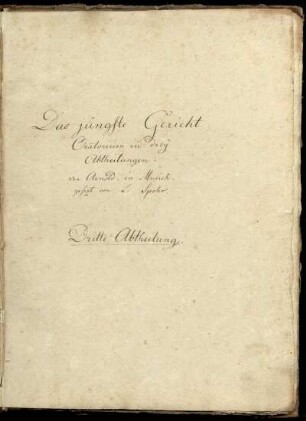 Das jüngste Gericht
Oratorium in drey
Abtheilungen.
von Arnold. in Musick
gesezt von L. Spohr
Dritte Abtheilung.